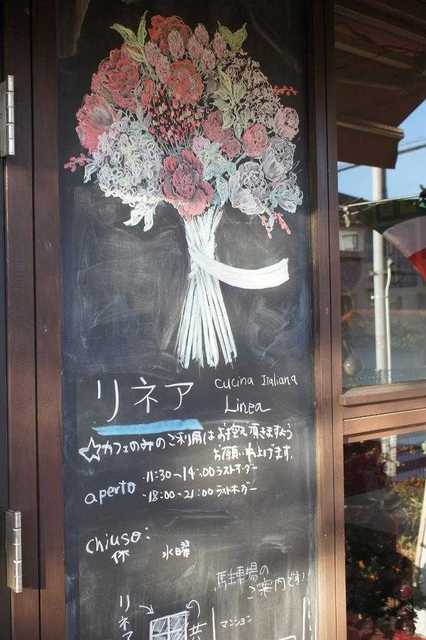 リネア
Cucina Italiana
Linea
☆カフェのみのご利用はお控え頂きますよう
お願い申し上げます。
aperto
・11:30〜14:00ラストオーダー
・18:00〜21:00ラストオーダー
chiuso:
休 水曜
駐車場の
ご案内です!
リネア
マンション